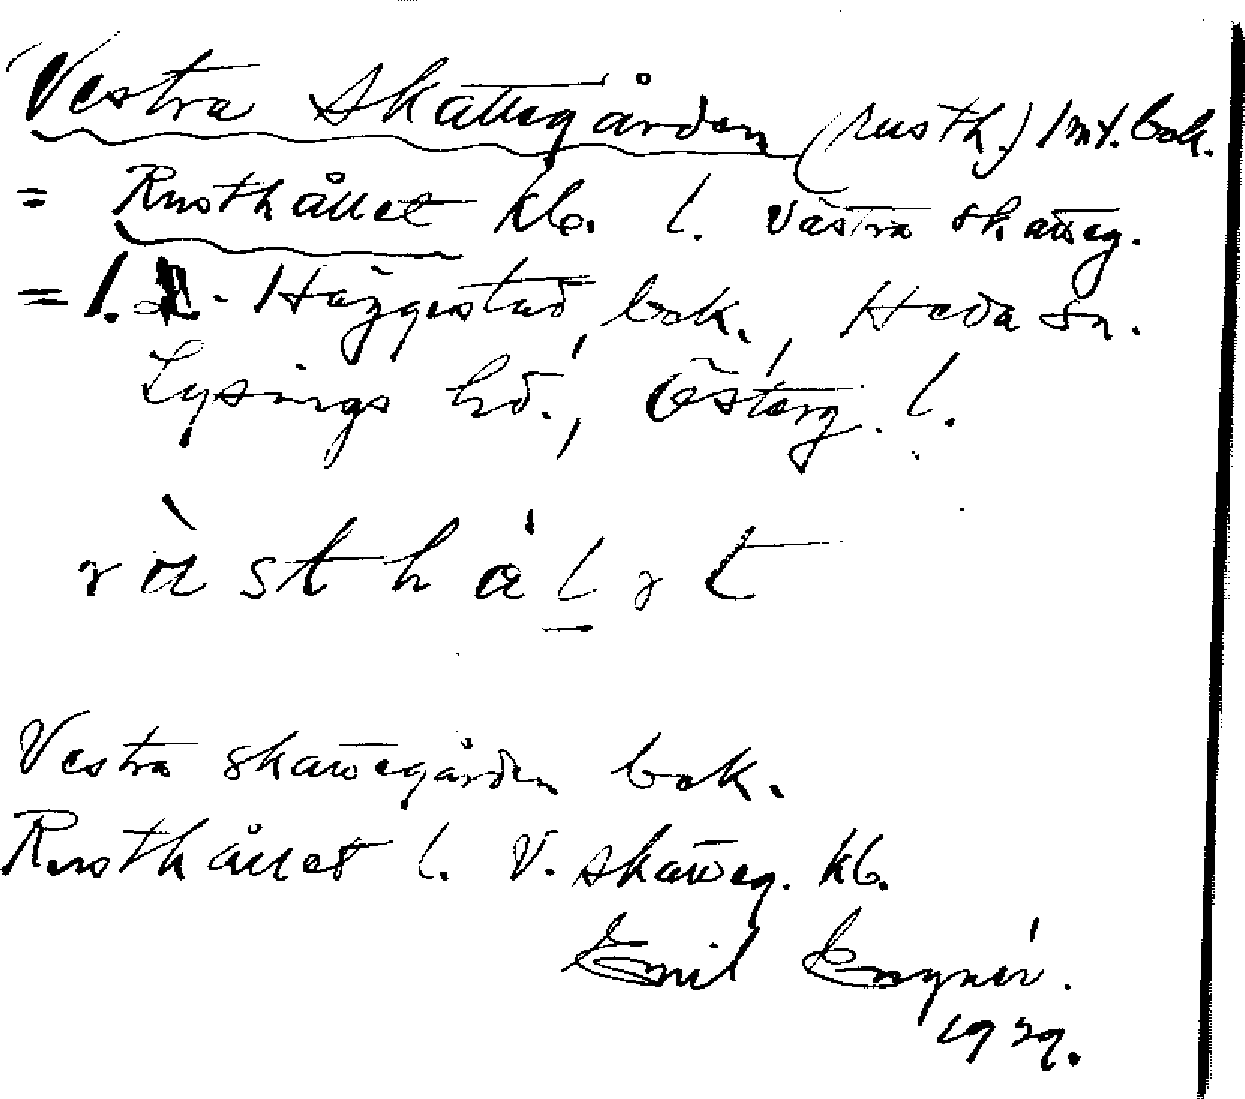 Vestra Skattegården (rusth.) 1 mt. bok.
= Rusthållet kb. l. Västra skatteg.
= 1. Häggestad, bok., Heda sn.
Lysings hd., Österg. l.
ràsthálət
Vestra skattegården bok.
Rusthållet l. V. skatteg. kb.
Emil
1929.